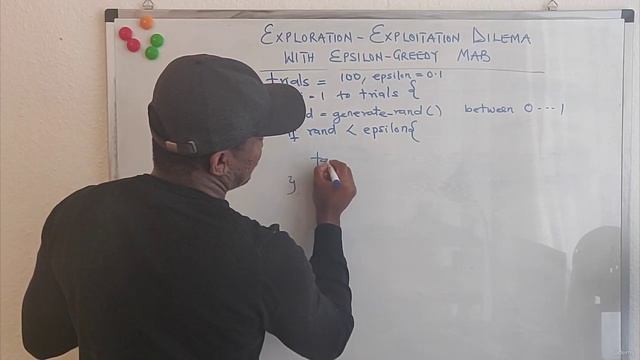 EXPLORATION - EXPLOITATION DILEMA
WITH EPSILON-GREEDY MAB
trials = 100, epsilon = 0.1
= 1 to trials {
= generate-rand() between 0 --- 1
rand < epsilon{
}